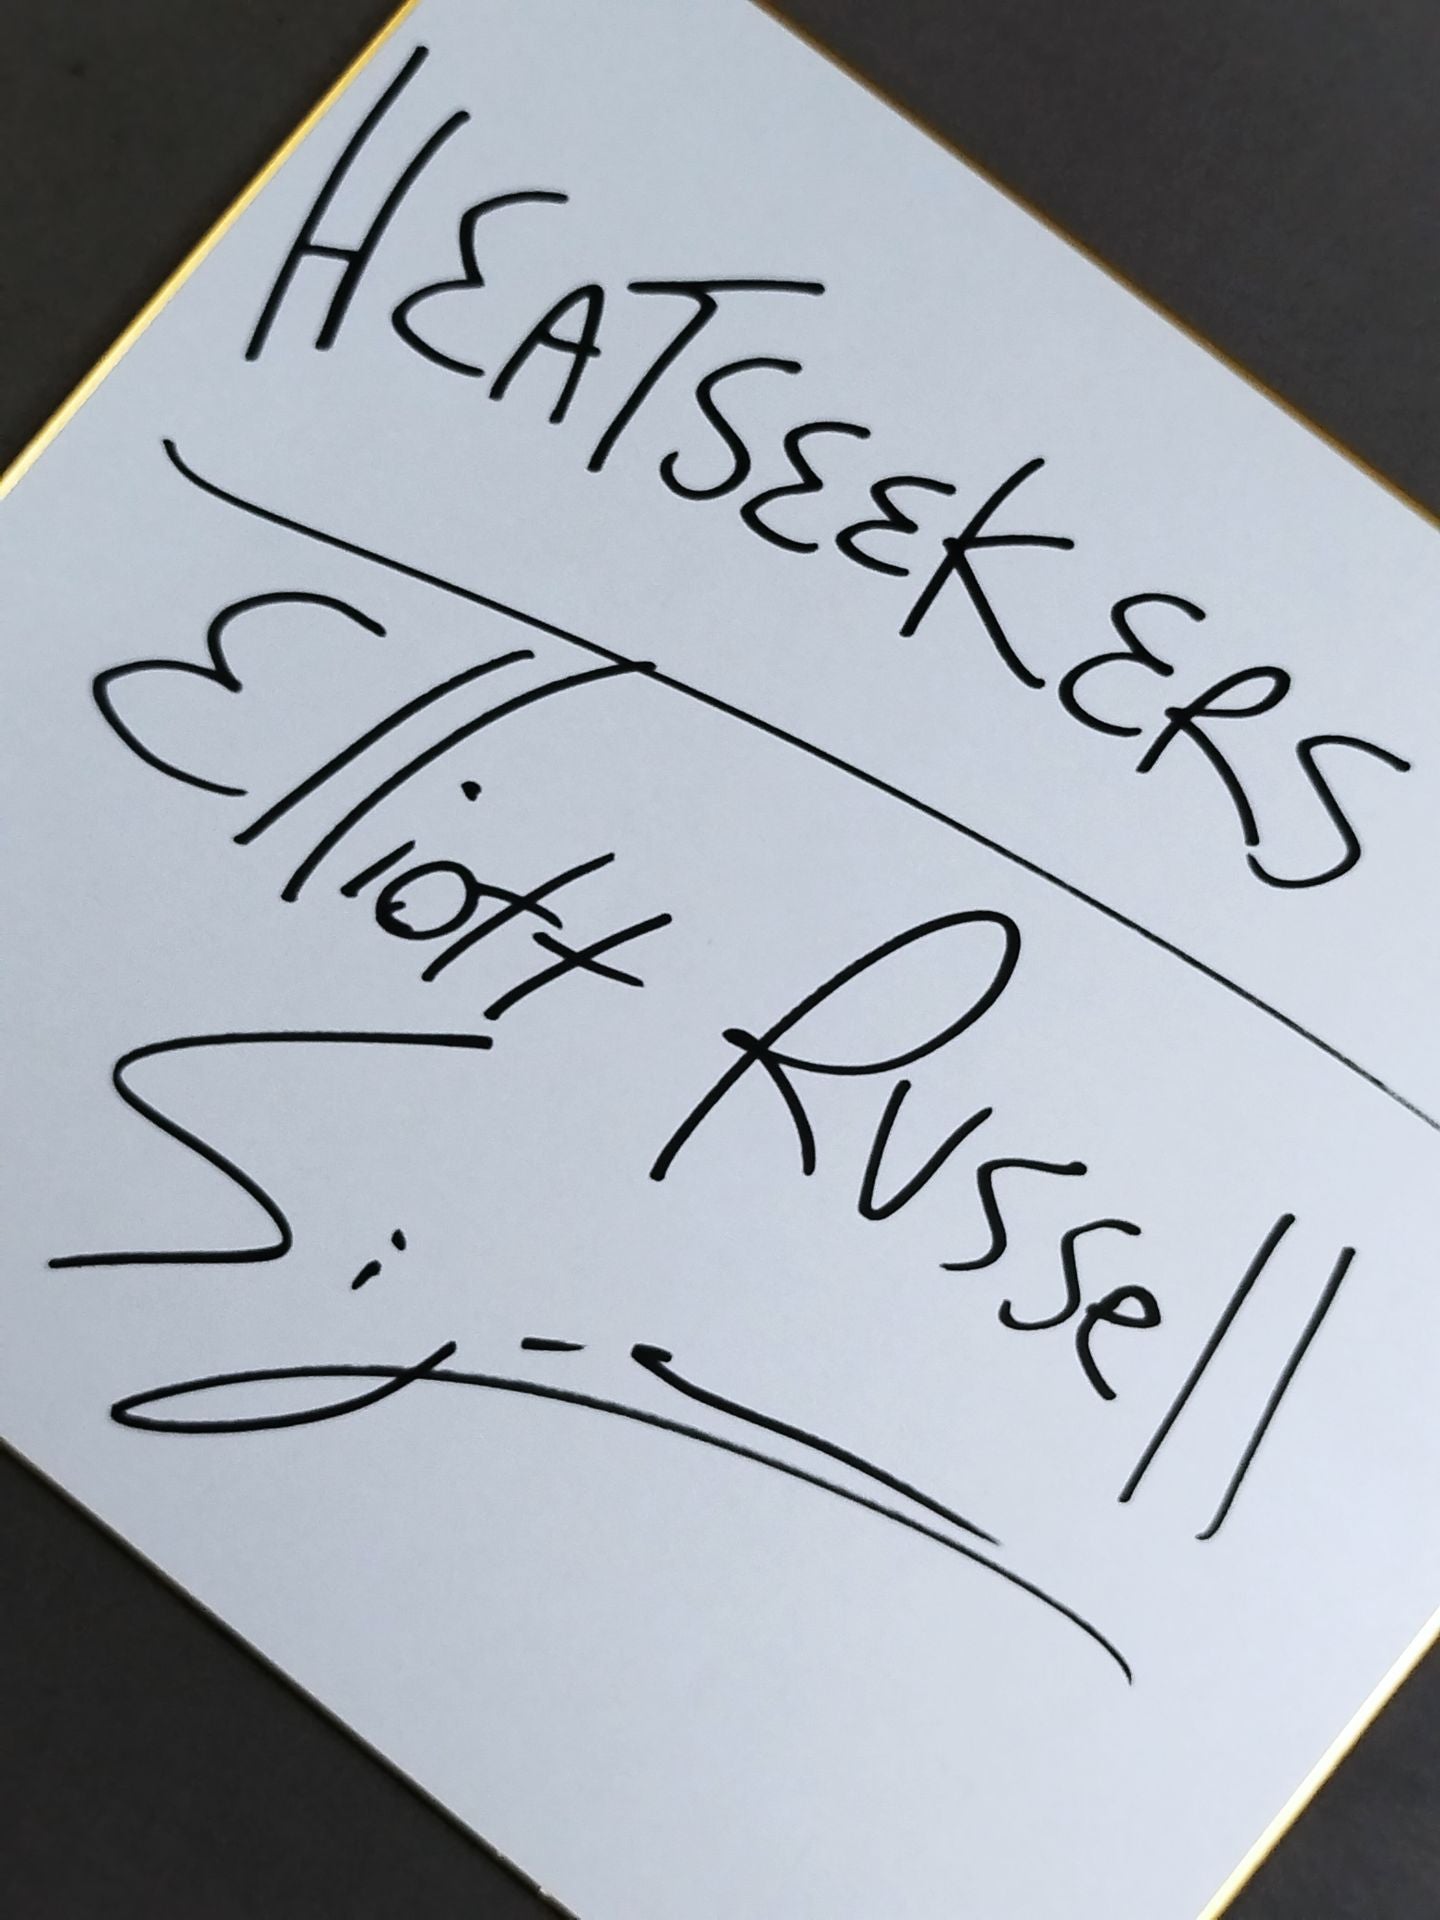 HEATSEEKERS
Elliott Russell